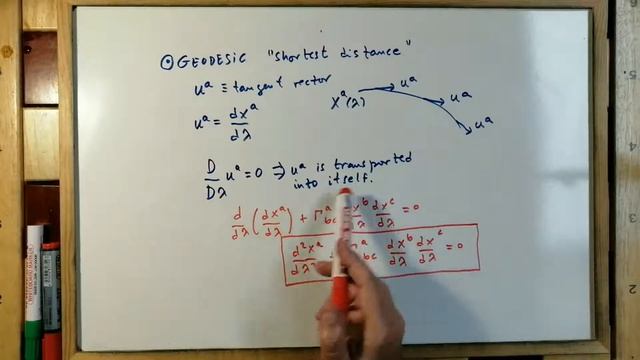 ⊙ GEODESIC "shortest distance"
u^a ≡ tangent vector
x^a(λ) u^a u^a u^a
u^a = dx^a/dλ
D/Dλ u^a = 0 ⇒ u^a is transported
into itself.
d/dλ (dx^a/dλ) + Γ^a_bc dx^b/dλ dx^c/dλ = 0
d²x^a/dλ² Γ^a_bc dx^b/dλ dx^c/dλ = 0